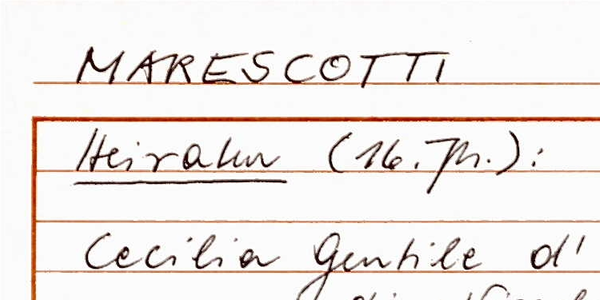 MARESCOTTI
Heiraten (16. Jh.):
Cecilia Gentile d'